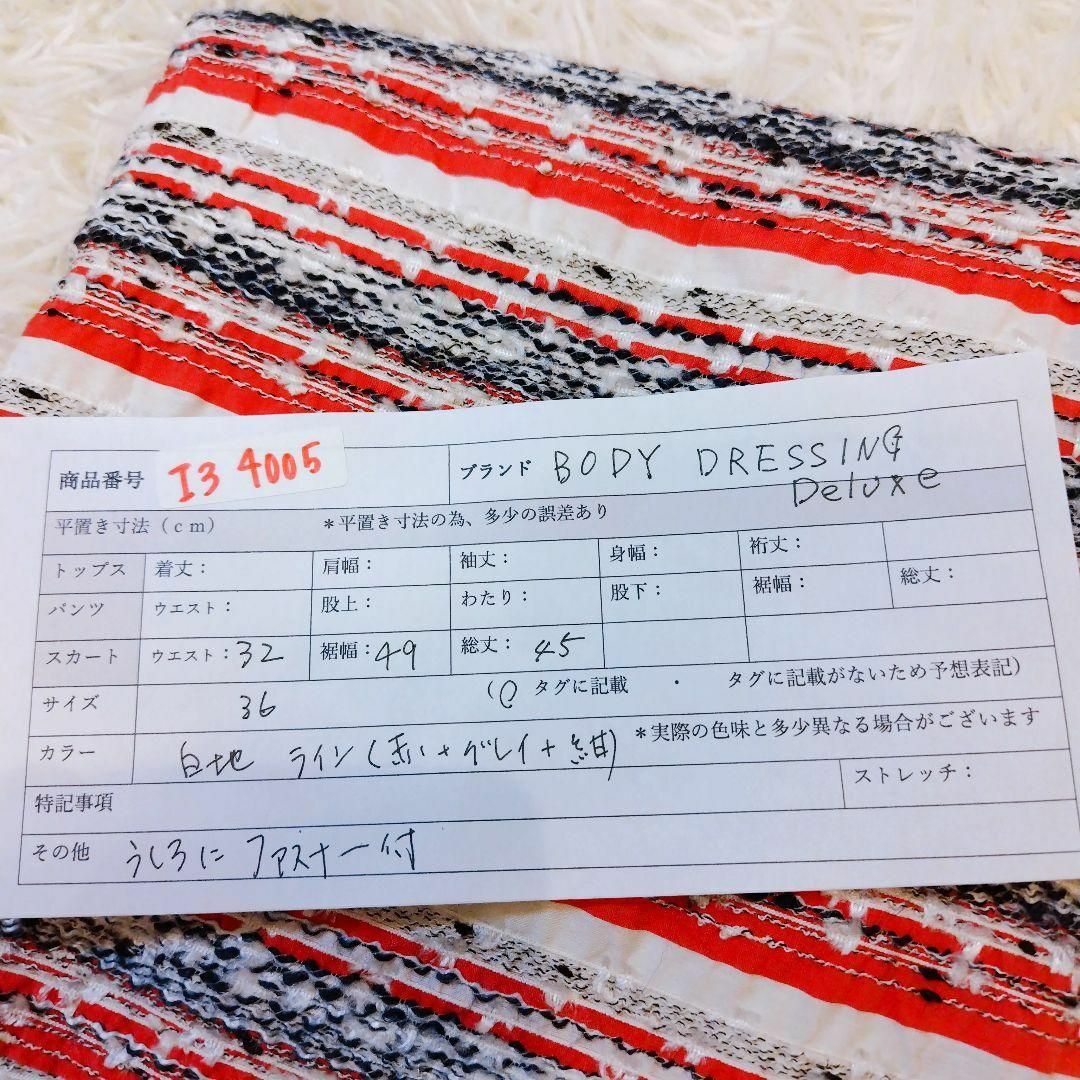 商品番号 I3 4005 ブランド BODY DRESSING
Deluxe
平置き寸法（cm） ＊平置き寸法の為、多少の誤差あり
トップス 着丈： 肩幅： 袖丈： 身幅： 裄丈：
パンツ ウエスト： 股上： わたり： 股下： 裾幅： 総丈：
スカート ウエスト：32 裾幅：49 総丈：45
サイズ 36 （○ タグに記載 ・ タグに記載がないため予想表記）
カラー 白地 ライン(赤+グレイ+紺) ＊実際の色味と多少異なる場合がございます
特記事項 ストレッチ：
その他 うしろに ファスナー付